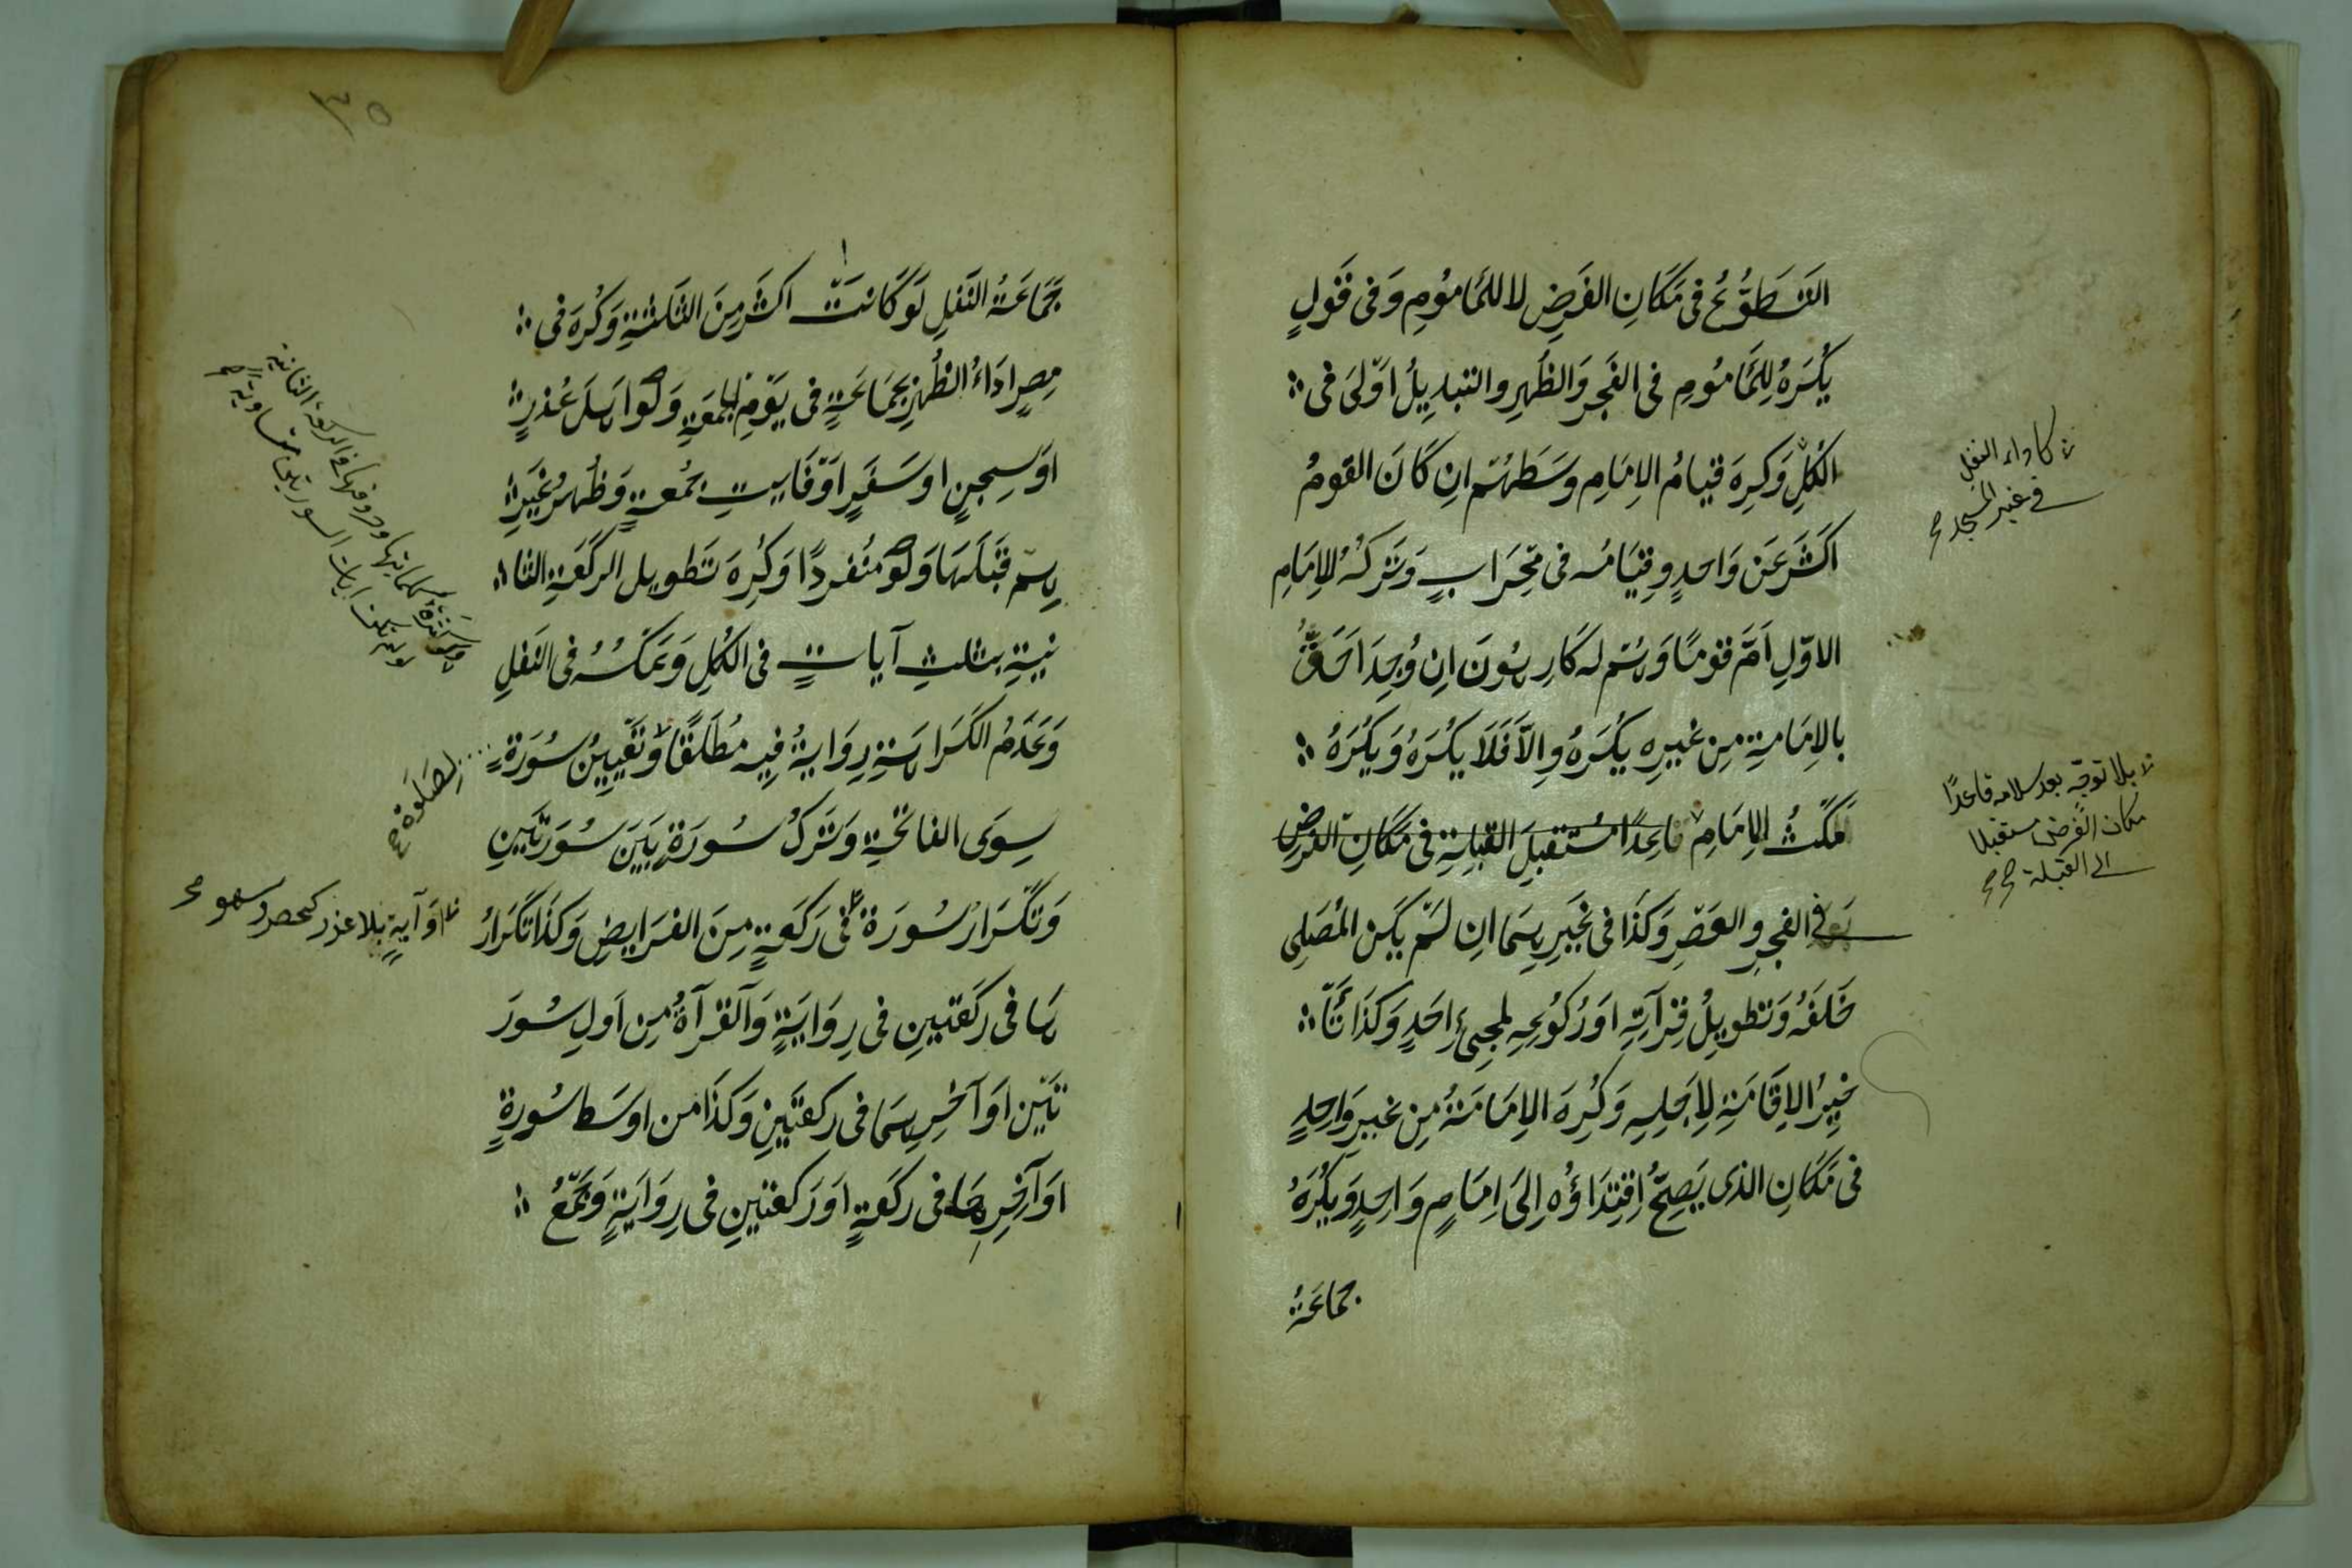 التَّطَوُّعُ فى مَكَانِ الفَرضِ لا للمَامُومِ وَفى قَولٍ
يُكْرَهُ لِلمَامُومِ فى الفَجرِ وَالظُهرِ والتبديلُ اَوّلىَ فى
الكُلِّ وَكِرهَ قيامُ الاِمَامِ وسَطَهُم انِ كَانَ القومُ
اكثَرَ عَن وَاحدٍ وقيَامُه فى مِحْرَابٍ وَتَركُهُ للاِمَامِ
الاوّلِ اَمَّ قومًا وَهُم له كَارِهُونَ اِن وُجِدَ اَحَقُّ
بالاِمَامةِ مِن غيرِه يُكْرَهُ وِالّا فَلاَ يُكْرَهُ وَيُكْرَهُ
مَكثُ الاِمَامِ قاعِدًا مُستقبِلَ القِبلةِ فى مَكَانِ الفَرضِ
فى الفجرِ والعَصْرِ وَكَذَا فى غَيرِهِمَا انِ لَمْ يَكنِ المُصَلِى
خَلفَهُ وَتطوِيلُ قِرآتِهِ اَو رُكُوعِهِ لمجِىءِ اَحَدٍ وَكَذَا تَأ
خيِرُ الاِقَامَةِ لاِجَلِهِ وَكُرِهَ الاِمَامَةُ مِن غيرِ وَاحِدٍ
فى مَكَانِ الذى يَصِحُّ اِقتِدَاؤُه اِلىَ اِمَامٍ وَاحِدٍ وَيُكْرَهُ
جماعَةُ
كاداء النفل
فى غير المسجد صح
بلا توجّه بعد سلامه قاعدًا
مكان الفرض مستقبلا
الى القبلة صح صح
٣٥
جَمَاعَةُ النَفلِ لَو كَانَت اكثَرَ مِنَ الثلثةِ وَكُرِهَ فى
مِصرٍ ادَاءُ الظُهرِ بِجَمَاعَةٍ فى يَومِ الجمعَةِ وَلَو اهلَ عُذرٍ
اَو سِجنٍ او سَفَرٍ اَو فَايتِ جُمعةٍ وَظُهرُ غَيرِ
هِم قَبلَهَا وَلَو مُنفردًا وَكُرِهَ تَطوِيل الركعَةِ الثا
نيةِ بثلثِ آياتٍ فى الكُلِ وَعَكسُهُ فى النَفلِ
وَعَدَمُ الكَرَاهَةِ رِوَايةُ فِيه مُطلَقًا وَتَعيينُ سُورَةٍ
سِوَى الفاتحَةِ وَتَركُ سُورَةٍ بَيَنَ سُورَتَينِ
وَتَكرَارُ سُورَةٍ فى رَكعَةٍ مِنَ الفَرَايِضِ وَكَذَا تَكرَارُ
هَا فى ركَعَتينِ فى رِوَايَةٍ وَالقرآةُ مِن اَولِ سُورَ
تَينِ اَو آخرِهِمَا فى ركعتَينِ وَكَذَا من اوسَط سُورةٍ
اَو آخِرِهَا فى ركعَةٍ اَو رَكعتينِ فى رِوَايَةٍ وَجَمعُ
لِصَلَوة صح
اَو آيةٍ بلا عذر كحصر وسهو صح